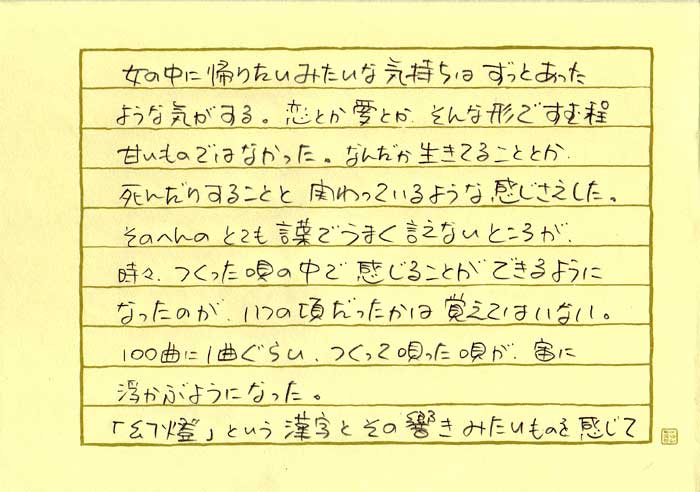 女の中に帰りたいみたいな気持ちは ずっとあった
ような気がする。恋とか愛とか、そんな形ですむ程
甘いものではなかった。なんだか生きてることとか、
死んだりすることと 関わっているような感じさえした。
そのへんの とても言葉でうまく言えないところが、
時々、つくった唄の中で感じることができるように
なったのが、いつの頃だったかは覚えてはいない。
100曲に1曲ぐらい、つくって唄った唄が、宙に
浮かぶようになった。
「幻燈」という漢字とその響きみたいものを感じて